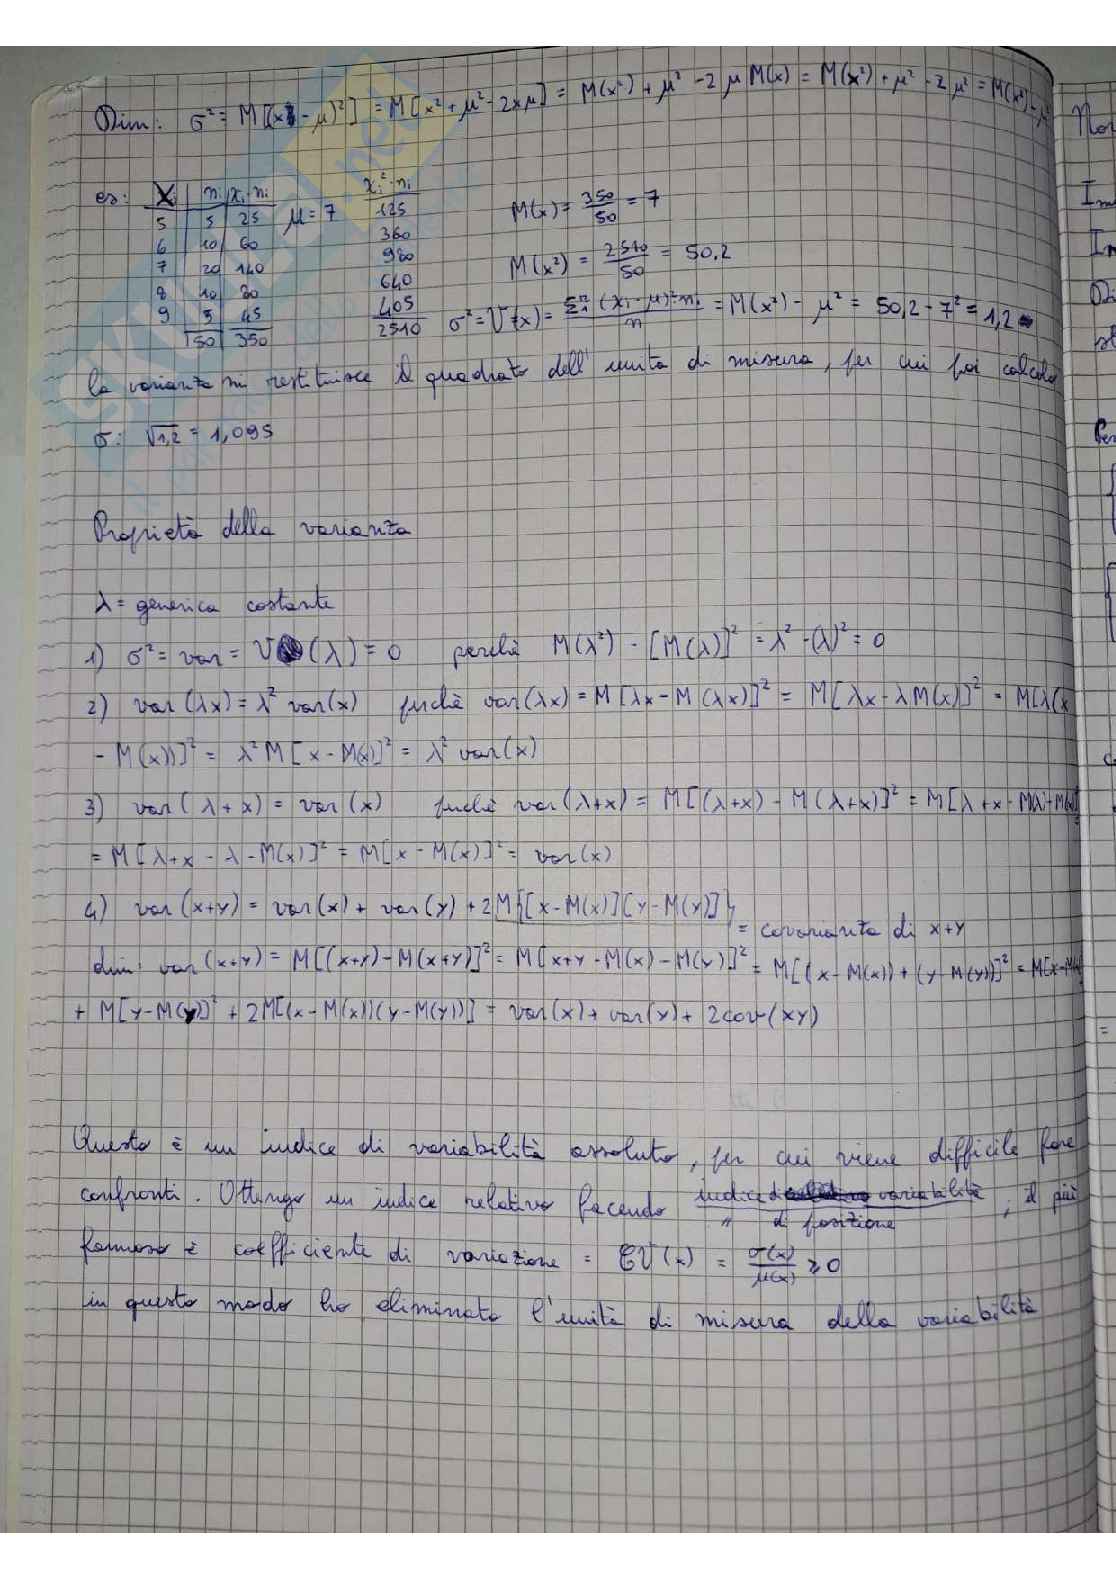 Dim: σ² = M[(x - μ)²] = M[x² + μ² - 2xμ] = M(x²) + μ² - 2μ M(x) = M(x²) + μ² - 2μ² = M(x²) - μ²
es: Xi | ni | xi·ni   xi²·ni
5 | 5 | 25   μ = 7   125   M(x) = 350/50 = 7
6 | 10 | 60   360
7 | 20 | 140   980   M(x²) = 2510/50 = 50,2
8 | 10 | 80   640
9 | 5 | 45   405
50 | 350   2510   σ² = V(x) = Σ₁ⁿ (xi - μ)²·ni / n = M(x²) - μ² = 50,2 - 7² = 1,2
la varianza mi restituisce il quadrato dell'unità di misura, per cui poi calcolo
σ: √1,2 = 1,095
Proprietà della varianza
λ = generica costante
1) σ² = var = V (λ) = 0 perchè M(λ²) - [M(λ)]² = λ² - (λ)² = 0
2) var (λx) = λ² var(x) perchè var(λx) = M[λx - M(λx)]² = M[λx - λM(x)]² = M[λ(x
- M(x))]² = λ² M[x - M(x)]² = λ² var(x)
3) var(λ + x) = var(x) perchè var(λ+x) = M[(λ+x) - M(λ+x)]² = M[λ + x - M(λ) - M(x)]²
= M[λ+x - λ - M(x)]² = M[x - M(x)]² = var(x)
4) var(x+y) = var(x) + var(y) + 2M{[x - M(x)][y - M(y)]} = covarianza di x+y
dim: var(x+y) = M[(x+y) - M(x+y)]² = M[x+y - M(x) - M(y)]² = M[(x - M(x)) + (y - M(y))]² = M[x - M(x)]²
+ M[y - M(y)]² + 2M[(x - M(x))(y - M(y))] = var(x) + var(y) + 2cov(xy)
Questo è un indice di variabilità assoluto, per cui viene difficile fare
confronti. Ottengo un indice relativo facendo indice di variabilità / " di posizione, il più
famoso è coefficiente di variazione = CV(x) = σ(x)/μ(x) ≥ 0
in questo modo ho eliminato l'unità di misura della variabilità